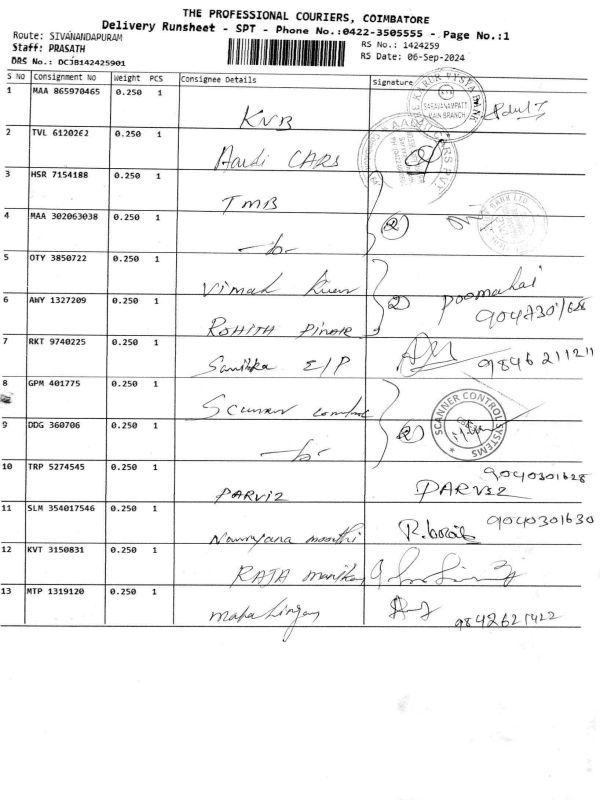 THE PROFESSIONAL COURIERS, COIMBATORE
Delivery Runsheet - SPT - Phone No.:0422-3505555 - Page No.:1
Route: SIVANANDAPURAM
Staff: PRASATH
DRS No.: DCJB142425901
RS No.: 1424259
RS Date: 06-Sep-2024
S NO Consignment No Weight PCS Consignee Details Signature
1 MAA 865970465 0.250 1 KVB
SARAVANAMPATTI
MAIN BRANCH
2 TVL 6120262 0.250 1 Aardi CARS
3 HSR 7154188 0.250 1 TMB
4 MAA 302063038 0.250 1 2
5 OTY 3850722 0.250 1 Vimal
6 AWY 1327209 0.250 1 ROHITH 2 Poomalai
7 RKT 9740225 0.250 1 E/P 98462 11211
8 GPM 401775 0.250 1 Scanner control
9 DDG 360706 0.250 1 2 SCANNER CONTROL SYSTEMS
10 TRP 5274545 0.250 1 PARVIZ PARVEZ 9040301628
11 SLM 354017546 0.250 1 9040301630
12 KVT 3150831 0.250 1 RAJA
13 MTP 1319120 0.250 1 mahalingam 9842621422